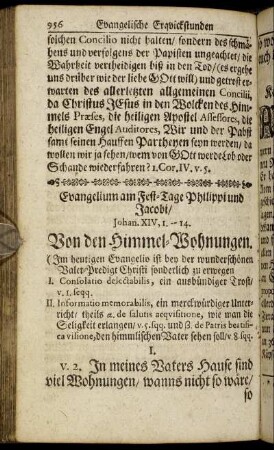 956 Evangelische Erqvickstunden
solchen Concilio nicht halten / sondern des schmä-
hens und verfolgens der Papisten ungeachtet / die
Wahrheit vertheidigen biß in den Tod / (es ergehe
uns drüber wie der liebe GOtt will) und getrost er-
warten des allerletzten allgemeinen Concilii,
da Christus JEsus in den Wolcken des Him-
mels Præses, die heiligen Apostel Assessores, die
heiligen Engel Auditores, Wir und der Pabst
samt seinen Hauffen Partheyen seyn werden / da
wollen wir ja sehen / wem von GOtt werde Lob oder
Schande wiederfahren? 1. Cor. IV. v. 5.
Evangelium am Fest-Tage Philippi und
Jacobi /
Johan. XIV, 1. — 14.
Von den Himmel-Wohnungen.
(Im heutigen Evangelio ist bey der wunderschönen
Valet-Predigt Christi sonderlich zu erwegen
I. Consolatio delectabilis, ein ausbündiger Trost /
v. 1. seqq.
II. Informatio memorabilis, ein merckwürdiger Unter-
richt / theils α. de salutis acqvisitione, wie man die
Seligkeit erlangen / v. 5. sqq. und β. de Patris beatifi-
ca visione, den himmlischen Vater sehen soll / v 8 sqq.
I.
v. 2. In meines Vaters Hause sind
viel Wohnungen / wanns nicht so wäre /
so